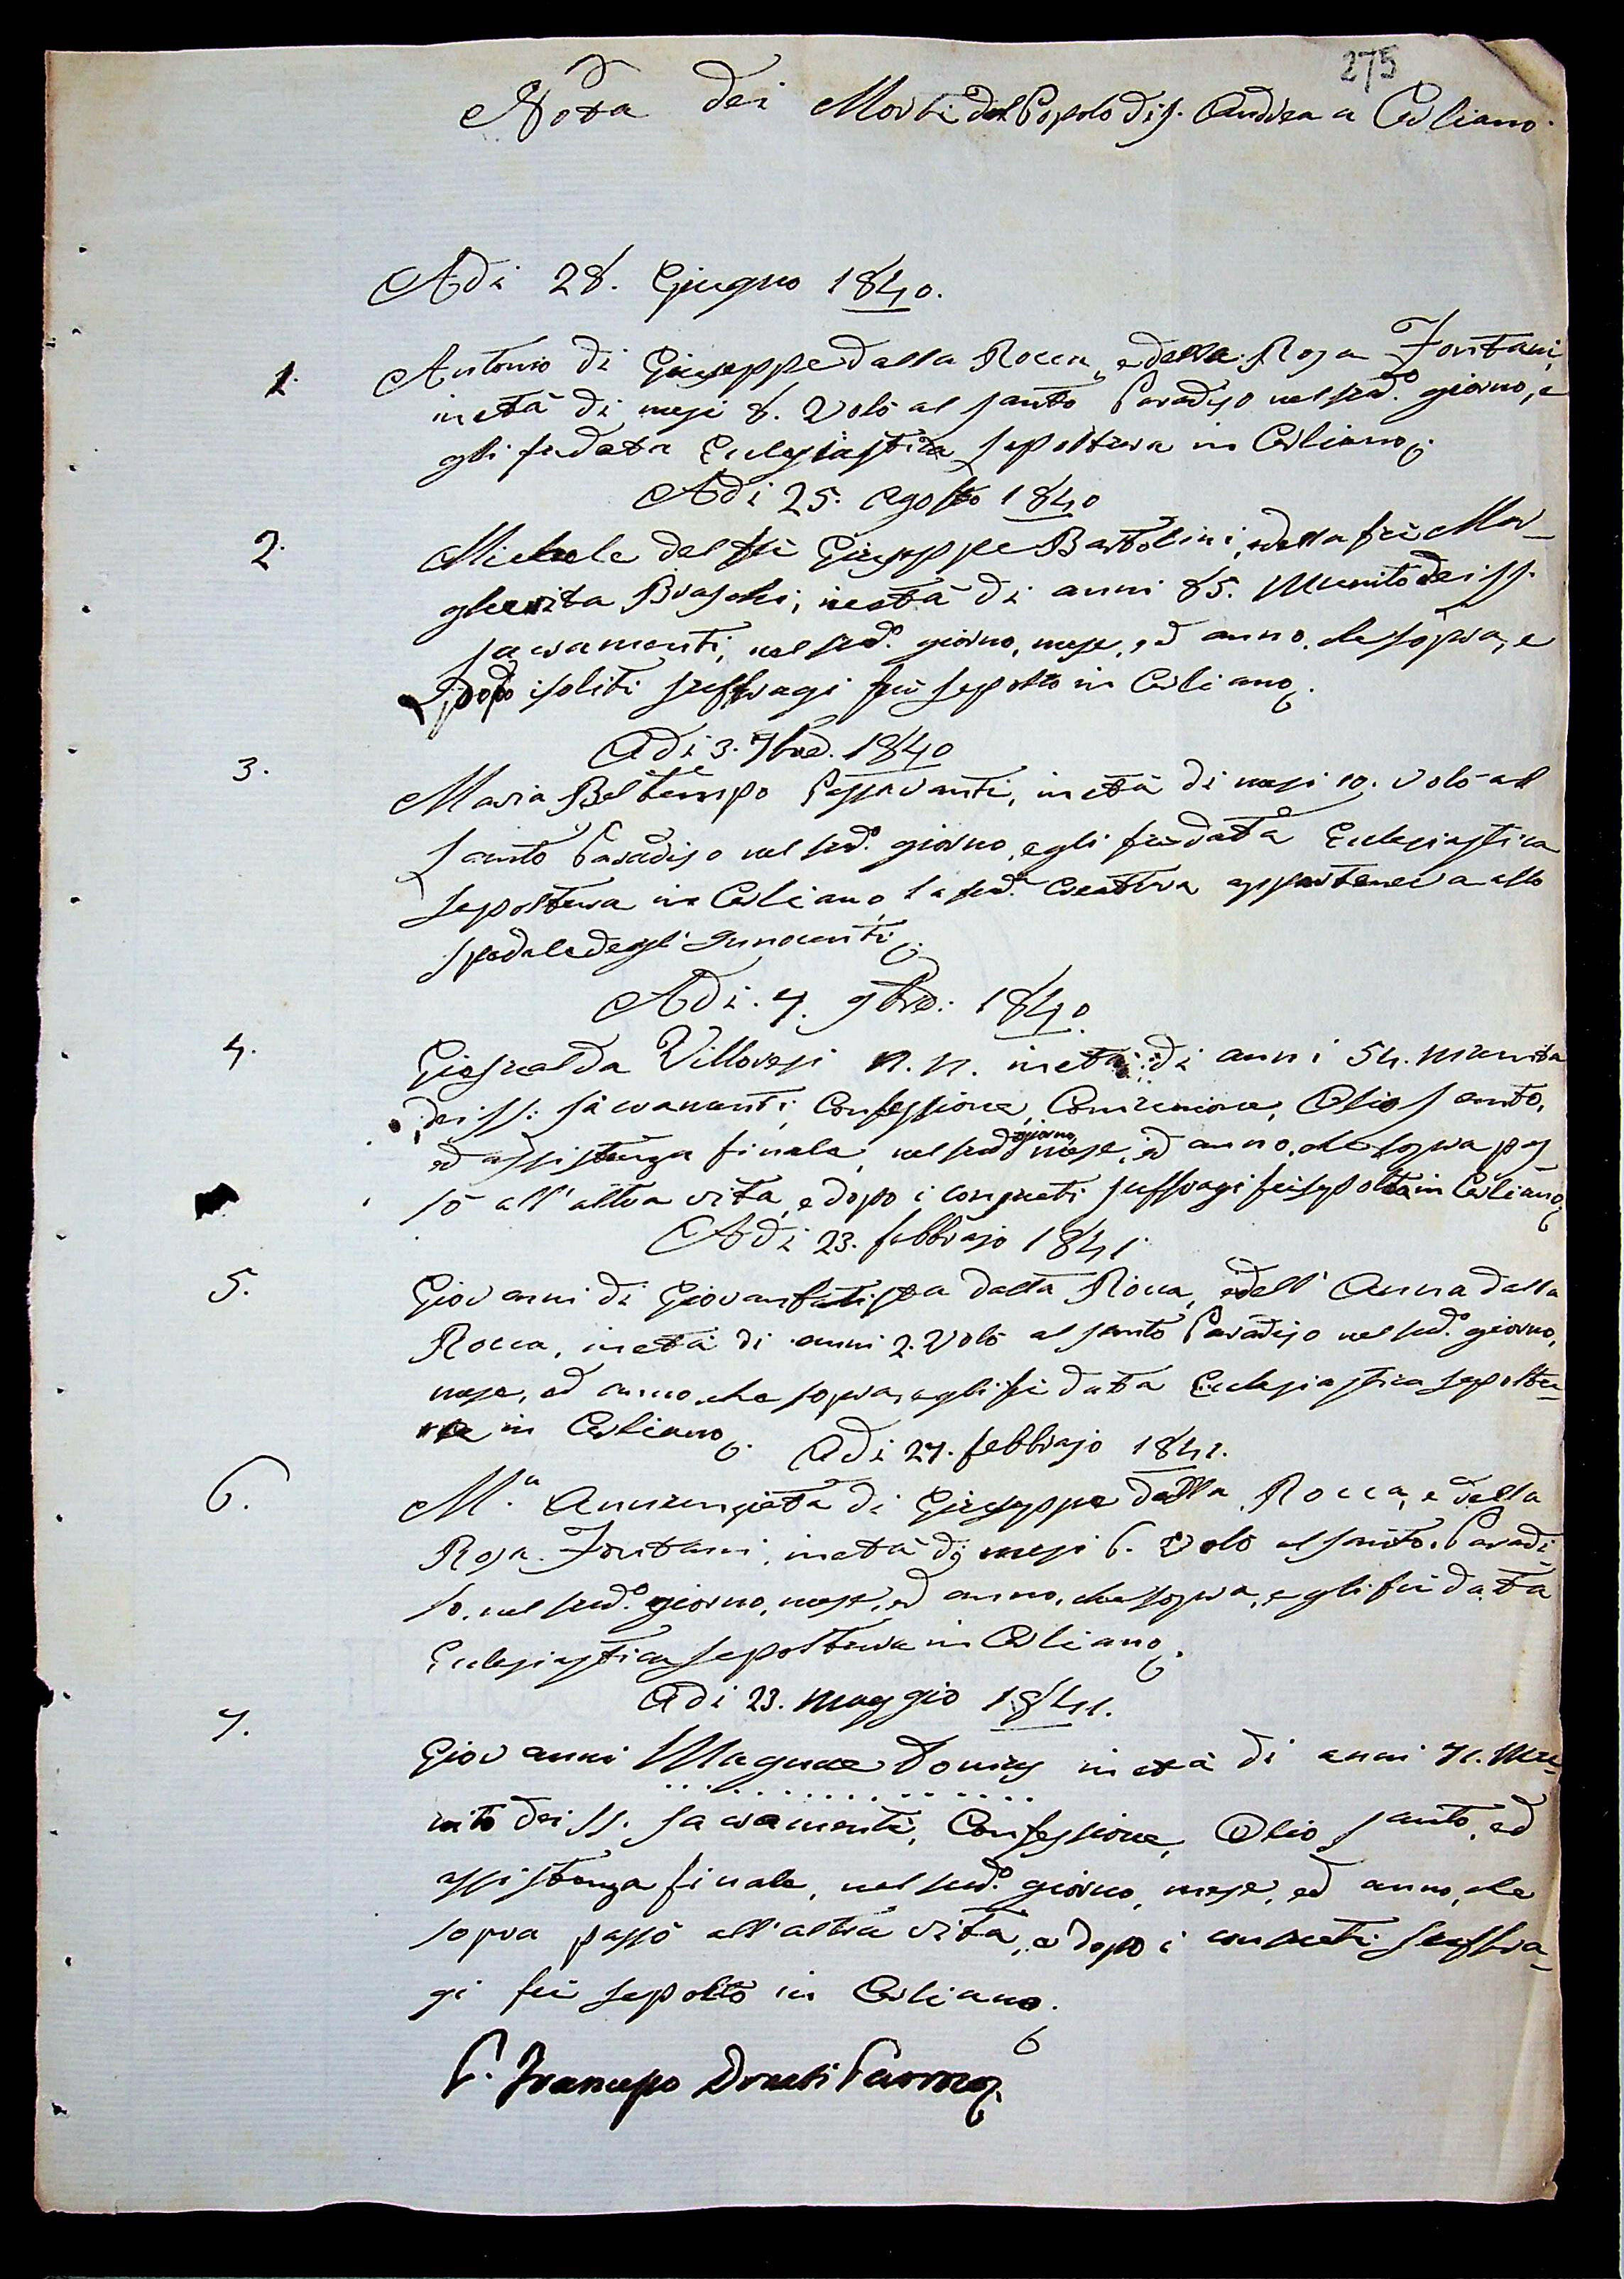 275
Nota dei Morti del Popolo di S. Andrea a Cerliano.
Adi 28. Giugno 1840.
1. Antonio di Giuseppe dalla Rocca, e della Rosa Fontani,
in età di mesi 8. Volò al santo Paradiso nel sud.º giorno, e
gli fu data Eclesiastica sepoltura in Cerliano.
Adi 25. Agosto 1840
2. Michele del fù Giuseppe Bartolini, e della fù Mar-
gherita Braschi, in età di anni 85. Munito dei SS.
sacramenti, nel sud.º giorno, mese, ed anno, che sopra, e
dopo i soliti suffragi fù sepolto in Cerliano.
Adi 3. 7bre. 1840
3. Maria Beltempo Passavanti, in età di mesi 10. volò al
santo Paradiso nel sud.º giorno, e gli fù data Eclesiastica
sepoltura in Cerliano, la sud.ª Creatura apparteneva allo
spedale degl' Innocenti.
Adi. 7. 9bre: 1840.
4. Giesualda Villoresi N. N. in età di anni 54. munita
dei SS: sacramenti, Confessione, Comunione, Olio santo,
ed assistenza finale, nel sud.º giorno, mese, ed anno, che sopra pas
sò all' altra vita, e dopo i consueti suffragi fù sepolta in Cerliano.
Adi 23. febbrajo 1841
5. Giovanni di Giovanbatista dalla Rocca, e dell' Anna dalla
Rocca, in età di anni 2. Volò al santo Paradiso nel sud.º giorno,
mese, ed anno che sopra, e gli fù data Eclesiastica sepoltu-
ra in Cerliano. Adi 27. febbrajo 1841.
6. M.ª Annunziata di Giuseppe dalla Rocca, e della
Rosa Fontani, in età di mesi 6. Volò al santo Paradi
so, nel sud.º giorno, mese, ed anno, che sopra, e gli fù data
Eclesiastica sepoltura in Cerliano.
Adi 23. maggio 1841.
7. Giovanni Magnae Domus in età di anni 71. Mu-
nito dei SS. sacramenti, Confessione, Olio santo, ed
assistenza finale, nel sud.º giorno, mese, ed anno, che
sopra passò all' altra vita, e dopo i consueti suffra-
gi fù sepolto in Cerliano.
P. Francesco Donati Parroco